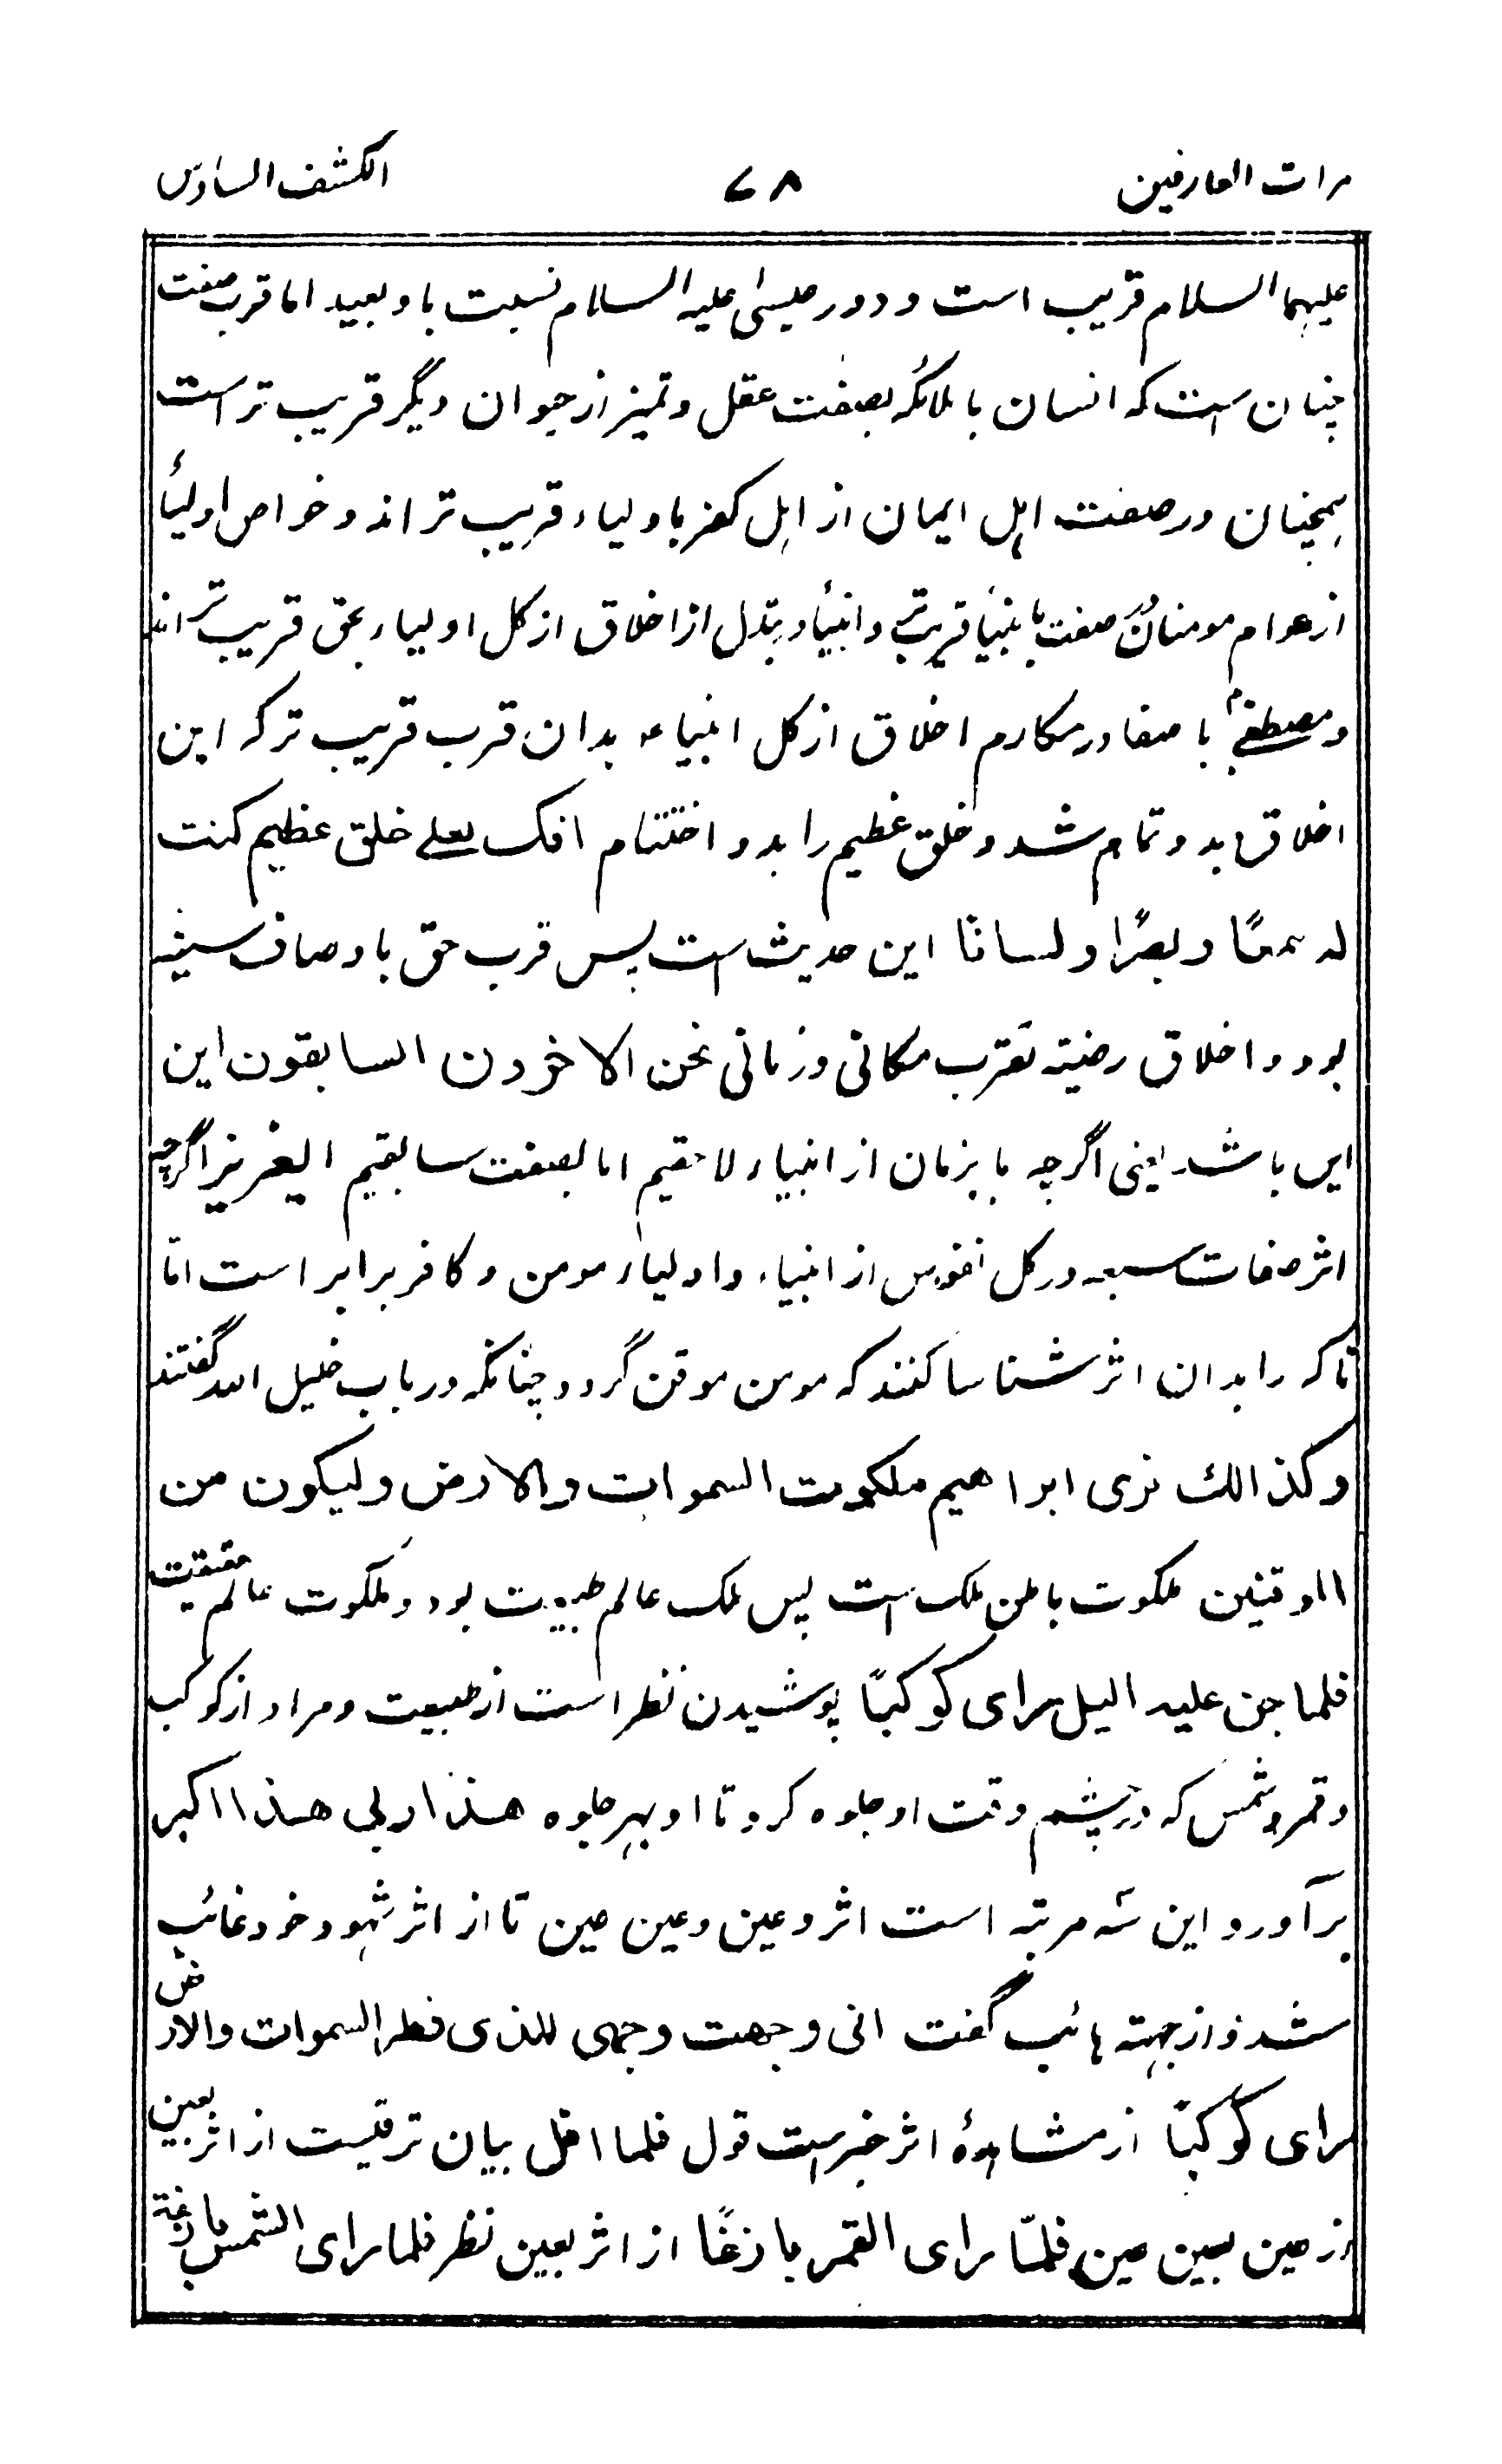 مرات العارفین ۷۸ الکشف السادس
علیهما السلام قریب است و دور عیسٰی علیہ السلام نسبت باو بعید اما قرب صفت
چنان ست کہ انسان با ملائکہ بصفت عقل و تمیز از حیوان دیگر قریب تر است
ہمچنان در صفت اہل ایمان از اہل کفر باولیاء قریب تر اند و خواص اولیأ
از عوام مومنان صفت بانبیأ قریب تر و انبیأ در تبدل از اخلاق از کل اولیاء بحق قریب تر اند
و مصطفےٰ با صفا در مکارم اخلاق از کل انبیاء بدان قرب قریب تر کہ این
اخلاق بدو تمام شد و خلق عظیم را بدو اختتام انک لعلے خلق عظیم کنت
لہ سمعًا و بصرًا و لسانًا این حدیث ست پس قرب حق باوصاف سنیہ
بود و اخلاق رضیتہ نہ قرب مکانی و زمانی نحن الاخرون السابقون این
این باشد یعنی اگرچہ ما بزمان از انبیاء لاحقیم اما بصفت سابقیم ایعزیز اگرچہ
اثر صفات سبعہ در کل نفوس از انبیاء و اولیاء مومن و کافر برابر است امّا
تا کہ را بدان اثر شناسا کنند کہ مومن موقن گردد چنانکہ در باب خلیل اللہ گفتند
و کذالک نری ابراهیم ملکوت السموات والارض ولیکون من
الموقنین ملکوت باطن ملک ست پس ملک عالم طبیعت بود و ملکوت عالم حقیقت
فلما جن علیہ الیل رای کوکبًا پوشیدن نظر است از طبیعت و مراد از کوکب
و قمر و شمس کہ در چشم وقت او جلوہ کرد تا او بہر جلوہ هذا ربی هذا اکبر
برآورد و این سہ مرتبہ است اثر و عین و عین عین تا از اثر شہود خود غائب
شد و از جہتہ غائب گفت انی وجهت وجهی للذی فطر السموات والارض
رای کوکبًا از مشاہدۂ اثر خبر ست قول فلما افل بیان ترقیست از اثر بعین
از عین بعین عین فلمّا رای القمر بازغًا از اثر بعین نظر فلما رای الشمس بازغة